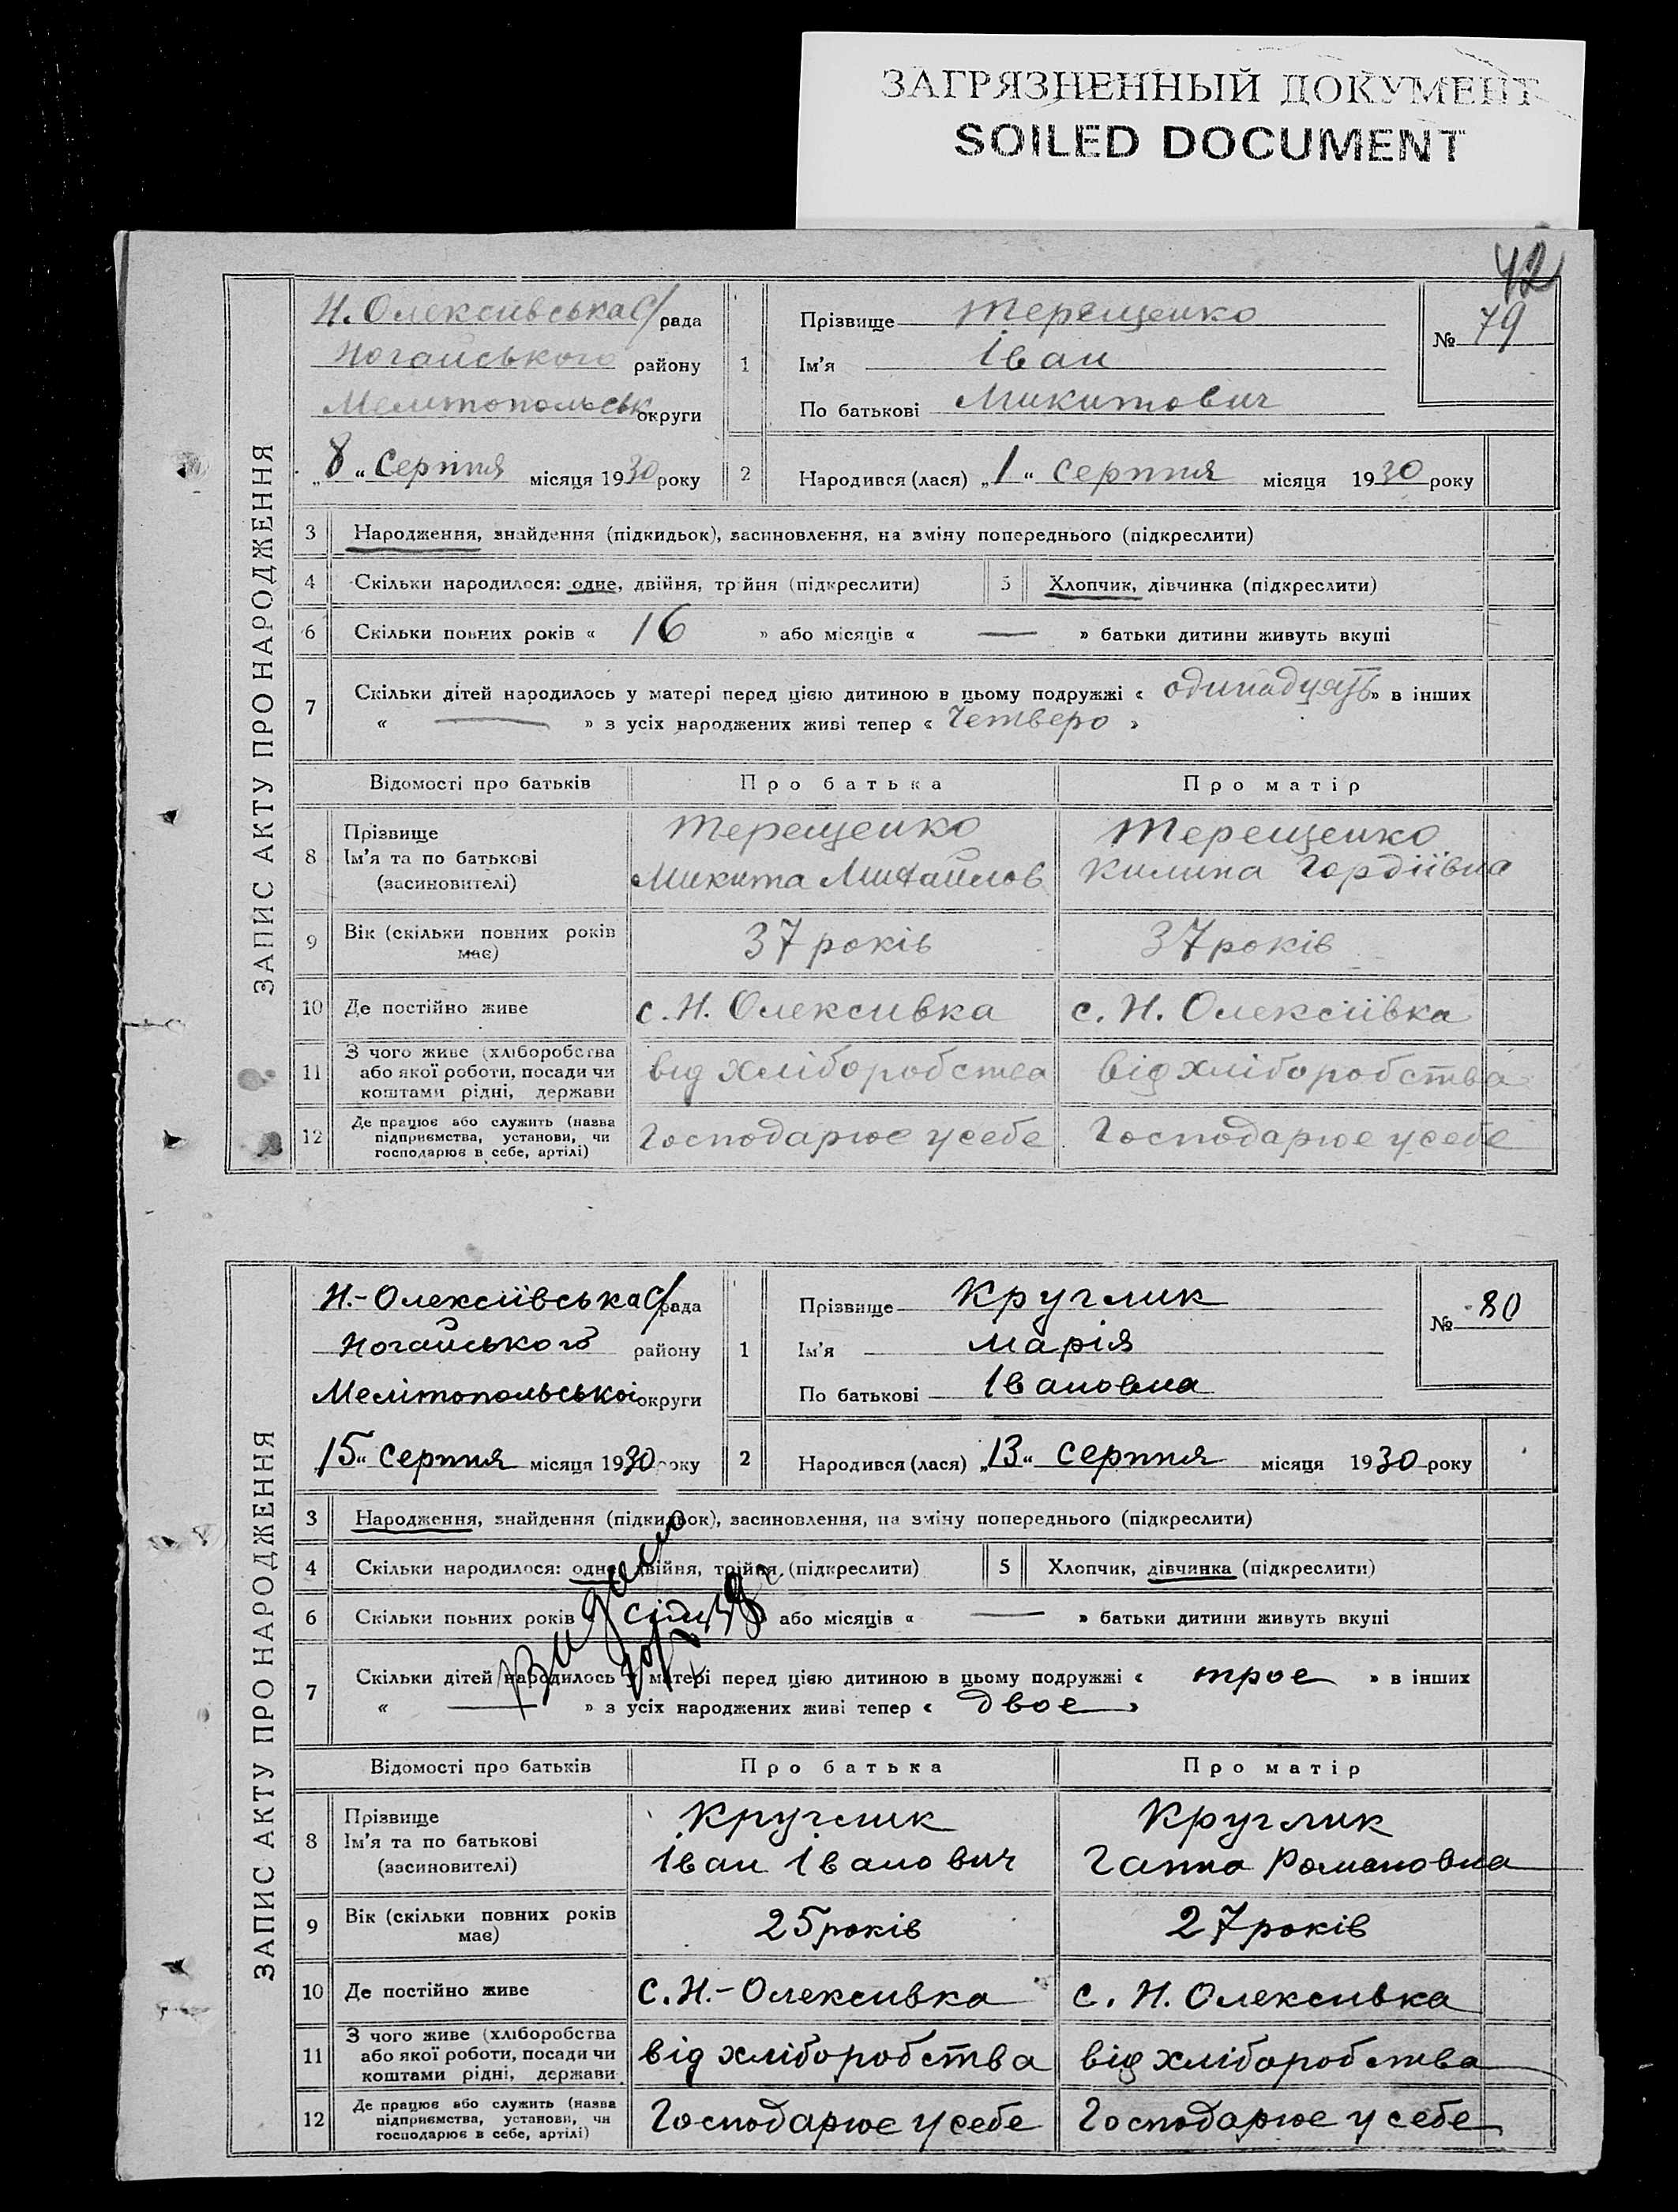 ЗАГРЯЗНЕННЫЙ ДОКУМЕНТ
SOILED DOCUMENT
42
ЗАПИС АКТУ ПРО НАРОДЖЕННЯ
Н. Олексиівська С/рада
Ногайського району
Мелітопольськ округи
„8“ Серпня місяця 1930 року
1 Прізвище Терещенко
Ім'я Іван
По батькові Микитович
№ 79
2 Народився (лася) „1“ Серпня місяця 1930 року
3 Народження, знайдення (підкидьок), засиновлення, на зміну попереднього (підкреслити)
4 Скільки народилося: одне, двійня, трійня (підкреслити) 5 Хлопчик, дівчинка (підкреслити)
6 Скільки повних років « 16 » або місяців « — » батьки дитини живуть вкупі
7 Скільки дітей народилось у матері перед цією дитиною в цьому подружжі « одинадцять » в інших
« — » з усіх народжених живі тепер « Четверо »
Відомості про батьків Про батька Про матір
8 Прізвище Ім'я та по батькові (засиновителі)
Терещенко Микита Михайлов
Терещенко Килина Гордіївна
9 Вік (скільки повних років має) 37 років 37 років
10 Де постійно живе с. Н. Олексиівка с. Н. Олексіївка
11 З чого живе (хліборобства або якої роботи, посади чи коштами рідні, держави від хліборобства від хліборобства
12 Де працює або служить (назва підприємства, установи, чи господарює в себе, артілі) Господарює у себе Господарює у себе
ЗАПИС АКТУ ПРО НАРОДЖЕННЯ
Н.-Олексіївська С/рада
Ногайського району
Мелітопольської округи
15“ Серпня місяця 1930 року
1 Прізвище Круглик
Ім'я Марія
По батькові Івановна
№ 80
2 Народився (лася) „13“ Серпня місяця 1930 року
3 Народження, знайдення (підкидьок), засиновлення, на зміну попереднього (підкреслити)
4 Скільки народилося: одне, двійня, трійня (підкреслити) 5 Хлопчик, дівчинка (підкреслити)
6 Скільки повних років « » або місяців « — » батьки дитини живуть вкупі
7 Скільки дітей народилось у матері перед цією дитиною в цьому подружжі « троє » в інших
« — » з усіх народжених живі тепер « двоє »
Відомості про батьків Про батька Про матір
8 Прізвище Ім'я та по батькові (засиновителі)
Круглик Іван Іванович
Круглик Ганна Романовна
9 Вік (скільки повних років має) 25 років 27 років
10 Де постійно живе с. Н.-Олексиівка с. Н. Олексиівка
11 З чого живе (хліборобства або якої роботи, посади чи коштами рідні, держави від хліборобства від хліборобства
12 Де працює або служить (назва підприємства, установи, чи господарює в себе, артілі) Господарює у себе Господарює у себе